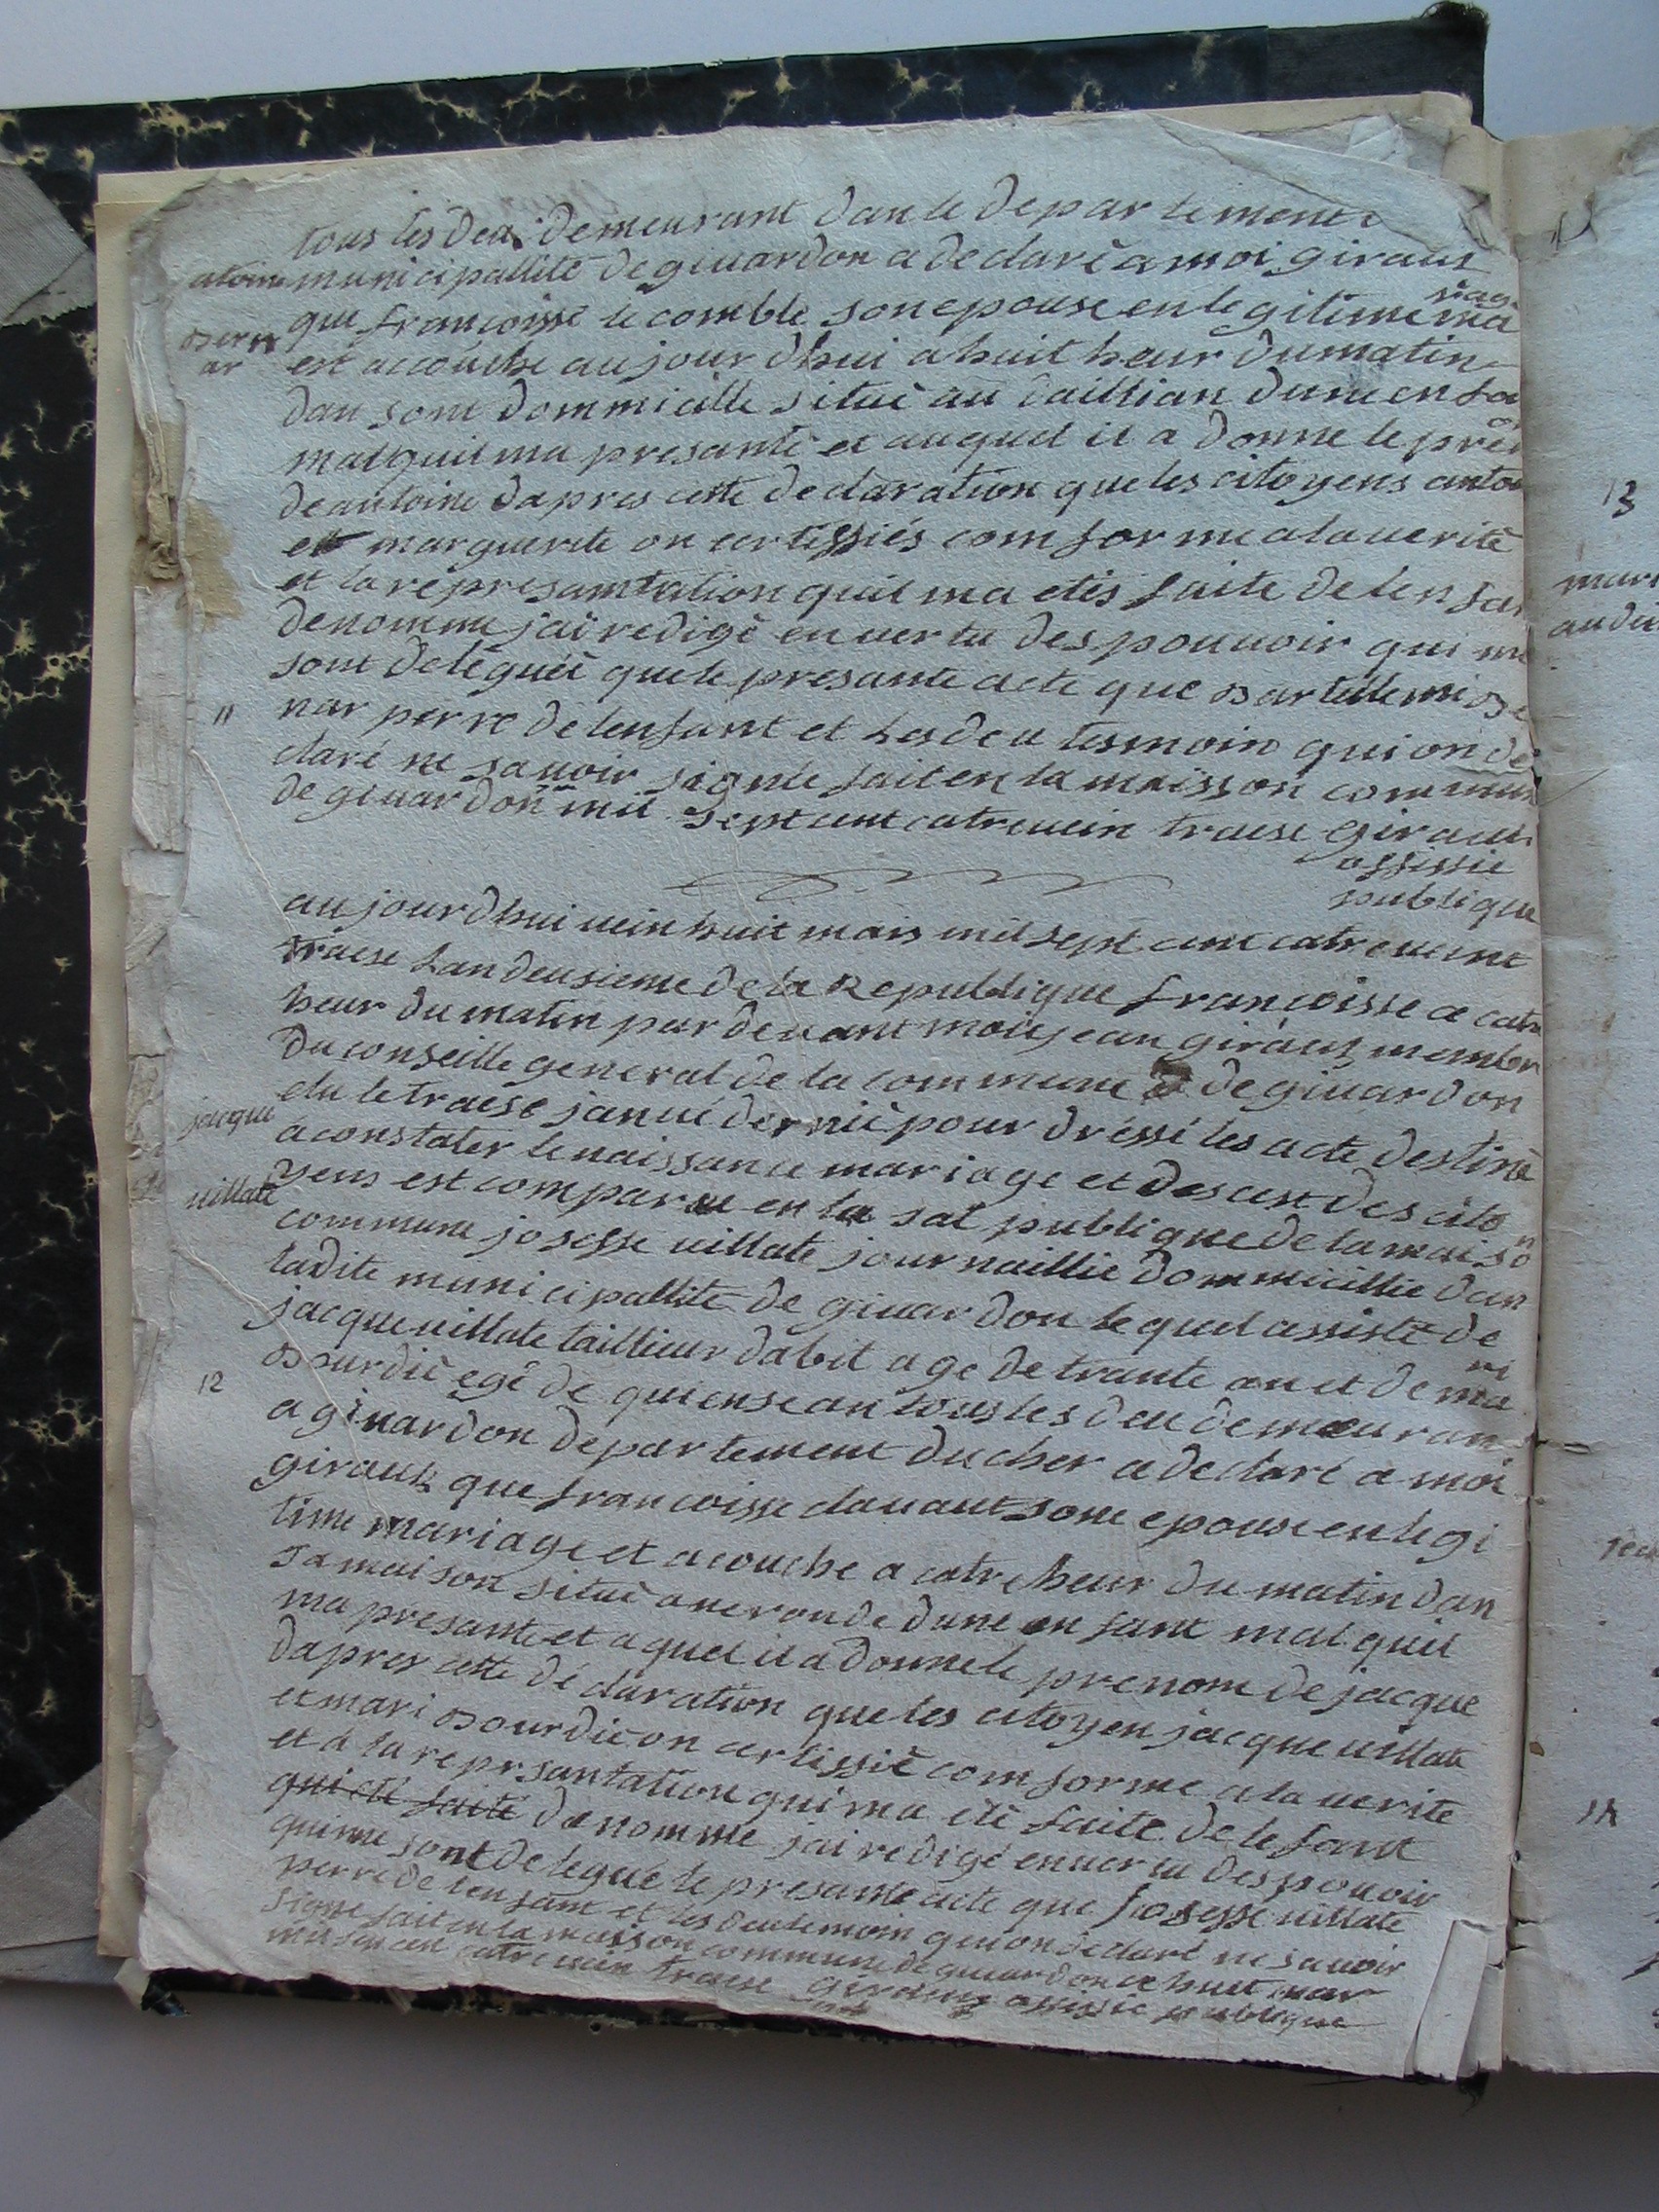 tous les deu demeurant dan le departement
atoine municipallité de giuardon a declaré a moi giraus
riag
bern que francoisse le comble son epouse en legitime ma
ar est accouche aujour dhui a huit heur du matin
dan sont dommicille situé au daillian dune en fa
mal quil ma presanté et auquel il a donne le pré
de antoine dapres cette declaration que les citoyens anto
et marguerite on certiffiés comforme a la uerité
et la represamtation quil ma etés faite de len fan
denomme jai redigé en uertu des pouuoir qui me
sont deleguéé que le presante acte que bartellemi be
11 nar perre de lenfant et les deu tesmoin qui on dé
claré ne sauoir signle fait en la maisson commun
de giuardon mil sept cent catreuein traese giraus
offissie
publique
aujourdhui uein huit mars mil sept cent catreueint
traese lan deusieme de la Republique francoisse a catr
heur du matin par deuant moi jean giraus member
du conseille general de la commune de giuardon
jacque elu le traese janué dernié pour dréssé les acte destiné
a constater le naissance mariage et desest des cito
uillate yens est comparue en la sal publique de la maiso
n
commune joseffe uillate journaillie dommicillie dan
ladite municipallité de giuardon le quel assisté de
jacque uillate taillieur dabit age de trante an et de ma
ri
12 bourdié egé de quiense an tous les deu demeuran
a giuardon departement du cher a declaré a moi
giraus que francoisse dauaut sone epouse en legi
time mariage et acouche a catre heur du matin dan
sa maison situé a neronde dune en fant mal quil
ma presante et aquel il a donne le prenom de jacque
dapres cette déclaration que les citoyen jacque uillate
et mari bourdié on certiffié comforme a la uerite
et a la reprsantation qui ma été faite de lefant
qui été faite denomme jai redigé en uertu des pouoir
qui me sont delegué le presante acte que joseffe uillate
perre de lenfant et les deu temoin qui on declaré ne sauoir
signe fait en la maisson commune de giuardon ce huit mar
mil sen cen catreuein traese giraus offissie publique
13
mari
14